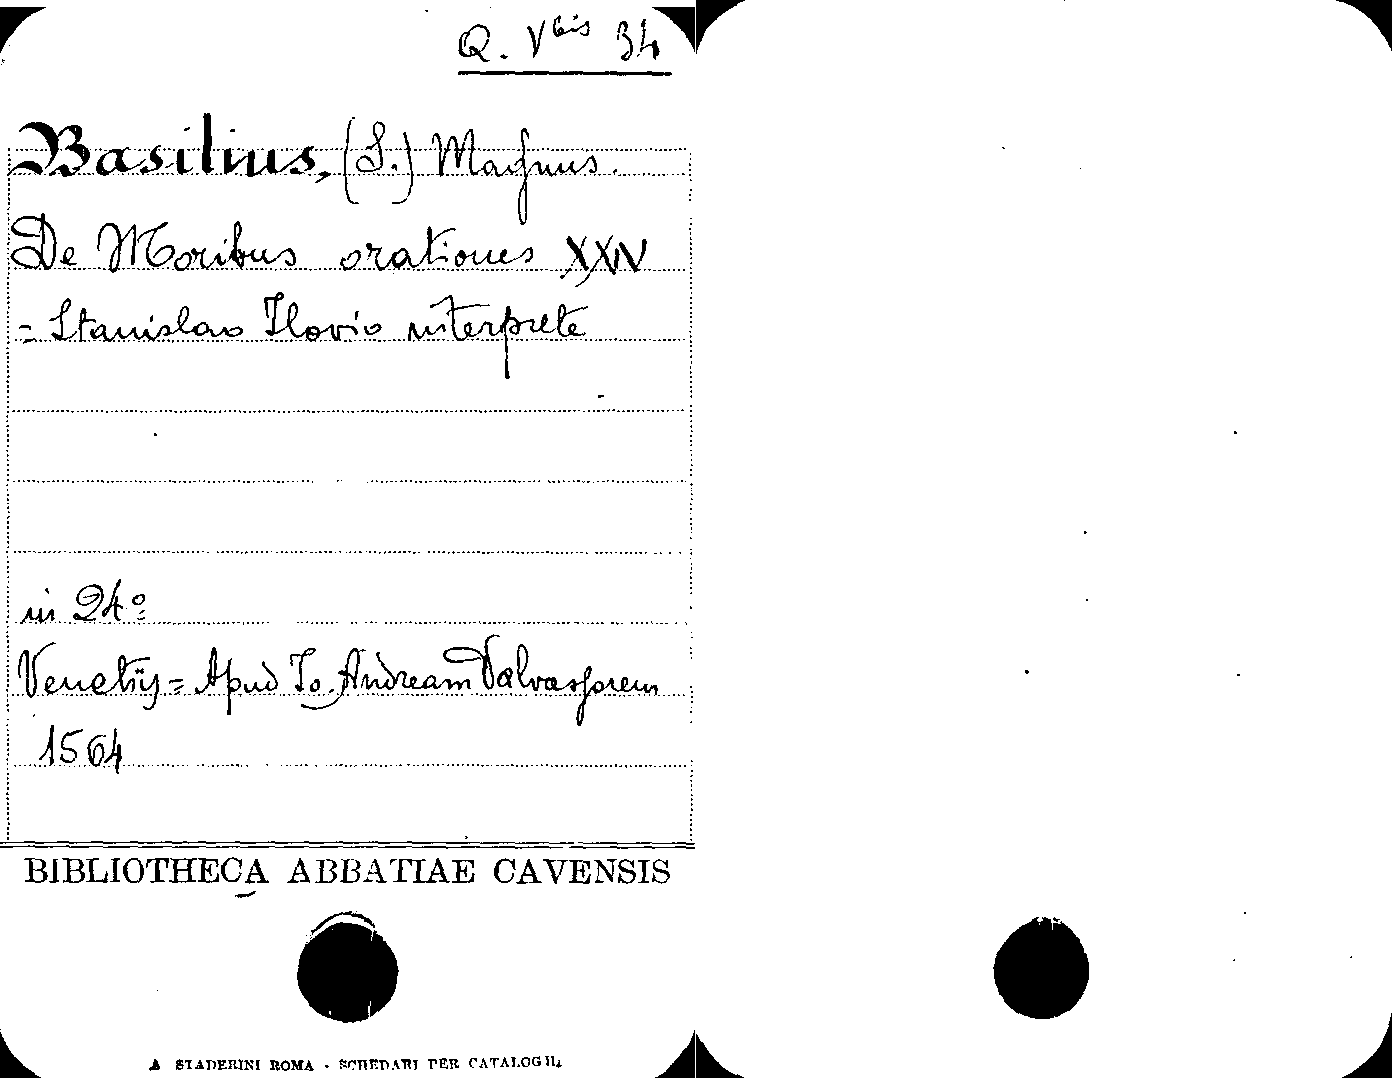 Q. V bis 34
Basilius, (S.) Magnus.
De Moribus orationes XXIV
= Stanislao Ilovio interprete
in 24º
Venetijs = Apud Io. Andream Valvassorem
1564
BIBLIOTHECA ABBATIAE CAVENSIS
STADERINI ROMA - SCHEDARI PER CATALOGHI